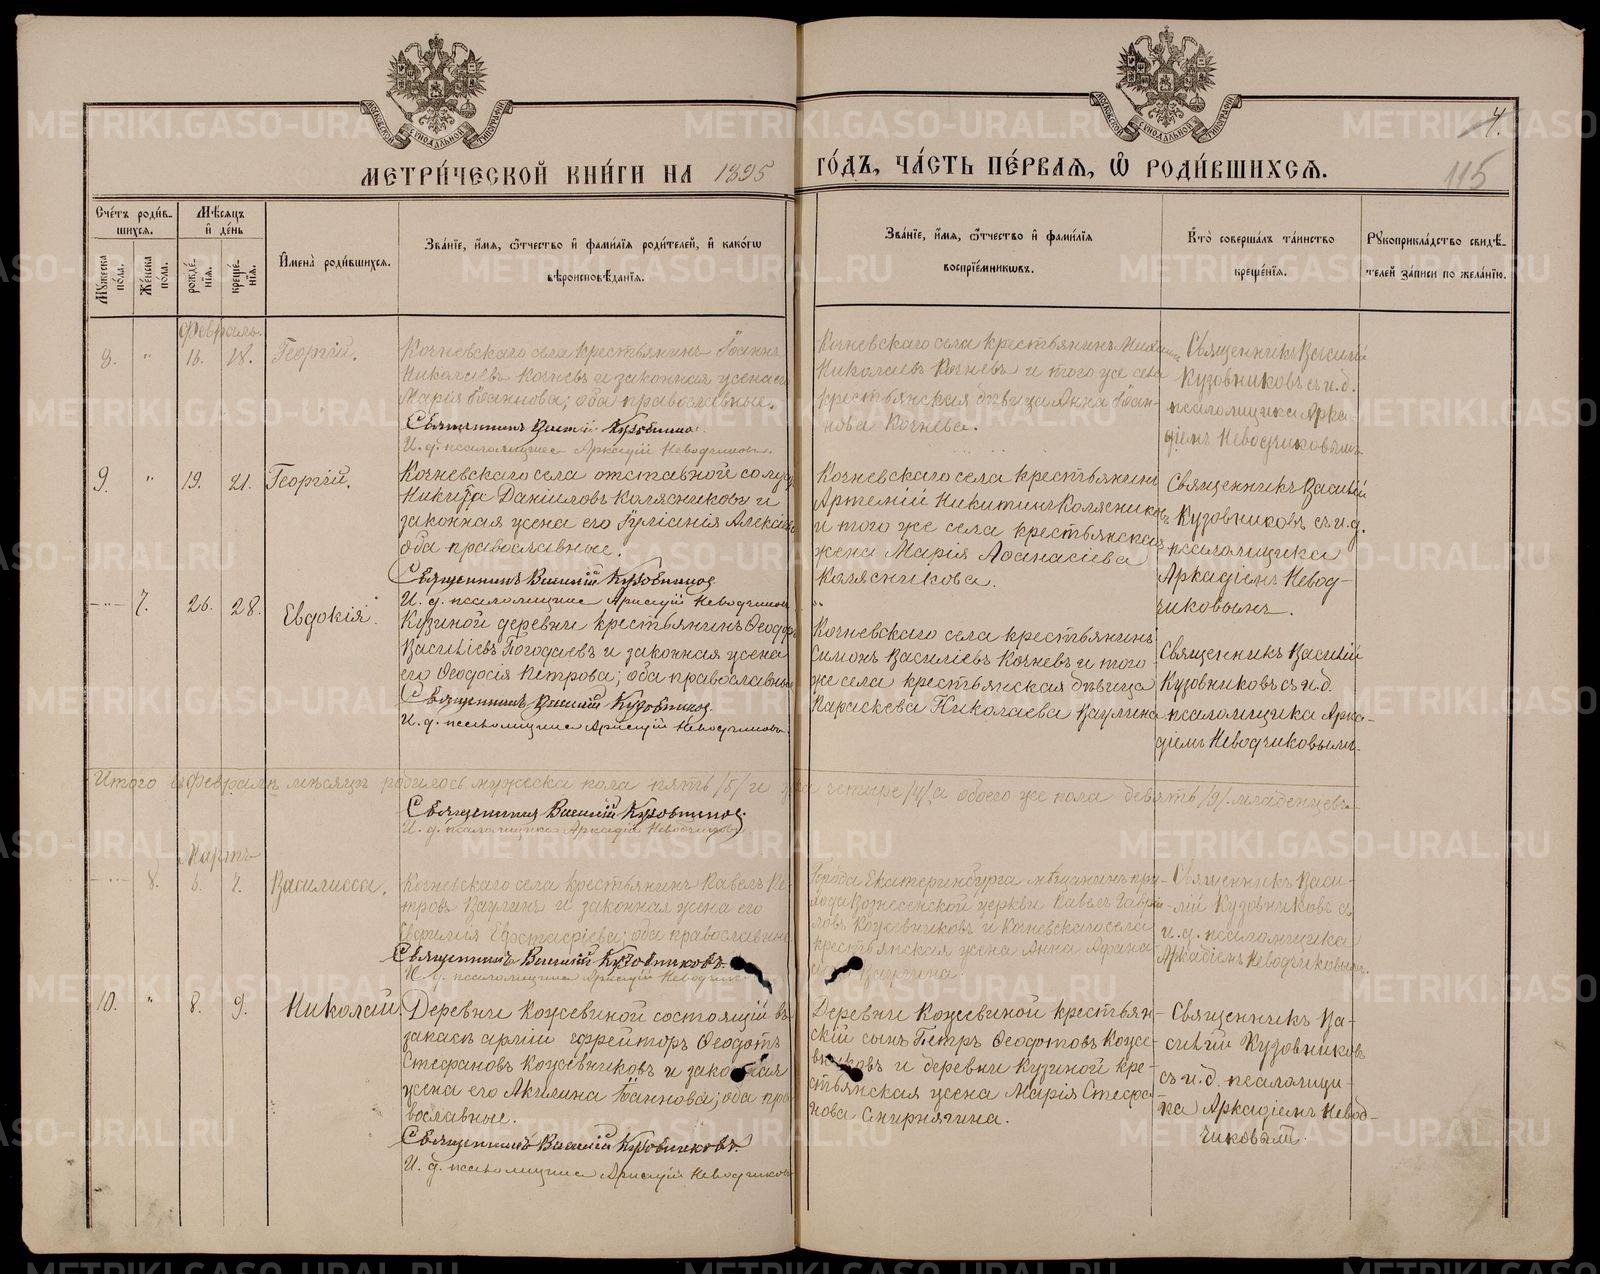 МОСКОВСКОЙ СѴНОДАЛЬНОЙ ТИПОГРАФІИ
МОСКОВСКОЙ СѴНОДАЛЬНОЙ ТИПОГРАФІИ
4.
115
МЕТРИ́ЧЕСКОЙ КНИ́ГИ НА 1895 ГО́ДЪ, ЧА́СТЬ ПЕ́РВАЯ, Ѿ РОДИ́ВШИХСЯ.
Сче́тъ роди́в-
шихся.
Мѣ́сяцъ
и҆ де́нь
Мꙋ́жеска по́ла.
Же́нска по́ла.
рожде́-нїя.
креще́-нїя.
И҆мена̀ роди́вшихся.
Зва́нїе, и҆́мя, ѻ҆́тчество и҆ фами́лїя роди́телей, и҆ како́гѡ
вѣроисповѣ́данїя.
Зва́нїе, и҆́мя, ѻ҆́тчество и҆ фами́лїя
воспрїе́мникѡвъ.
Кто̀ соверша́лъ та́инство
креще́нїя.
Рꙋкоприкла́дство свидѣ́-
телей за́писи по жела́нїю.
Февраль.
8. " 16. 18. Георгій.
Кочневскаго села крестьянинъ Іоаннъ
Николаевъ Кочневъ и законная жена его
Марія Іоаннова; оба православные.
Священникъ Василій Кузовниковъ.
И. д. псаломщика Аркадій Неводчиковъ.
Кочневскаго села крестьянинъ Михаилъ
Николаевъ Кочневъ и того же села
крестьянская дѣвица Анна Іоан-
нова Кочнева.
Священникъ Василій
Кузовниковъ съ и. д.
псаломщика Арка-
діемъ Неводчиковымъ.
9. " 19. 21. Георгій.
Кочневскаго села отставной солдатъ
Никита Даниловъ Колясниковъ и
законная жена его Іуліанія Алексѣева
оба православные.
Священникъ Василій Кузовниковъ
И. д. псаломщика Аркадій Неводчиковъ
Кочневскаго села крестьянинъ
Артемій Никитинъ Колясниковъ
и того же села крестьянская
жена Марія Аѳанасіева
Колясникова.
Священникъ Василій
Кузовниковъ съ и. д.
псаломщика
Аркадіемъ Невод-
чиковымъ.
" 7. 26. 28. Евдокія.
Кузиной деревни крестьянинъ Ѳеодоръ
Василіевъ Погодаевъ и законная жена
его Ѳеодосія Петрова; оба православные
Священникъ Василій Кузовниковъ
И. д. псаломщика Аркадій Неводчиковъ.
Кочневскаго села крестьянинъ
Симонъ Василіевъ Кочневъ и того
же села крестьянская дѣвица
Параскева Николаева Ваулина
Священникъ Василій
Кузовниковъ съ и. д.
псаломщика Арка-
діемъ Неводчиковымъ.
Итого въ Февралѣ мѣсяцѣ родилось мужеска пола пять /5/ и женска четыре /4/, а обоего же пола девять /9/ младенцевъ.
Священникъ Василій Кузовниковъ.
И. д. псаломщика Аркадій Неводчиковъ
Мартъ
" 8. 6. 7. Василисса.
Кочневскаго села крестьянинъ Павелъ Пе-
тровъ Ваулинъ и законная жена его
Евфимія Евстафіева; оба православные
Священникъ Василій Кузовниковъ.
И. д. псаломщика Аркадій Неводчиковъ
Города Екатеринбурга мѣщанинъ при-
хода Вознесенской церкви Павелъ Гаврі-
ловъ Кожевниковъ и Кочневскаго села
крестьянская жена Анна Афана-
Ваулина
Священникъ Васи-
лій Кузовниковъ съ
и. д. псаломщика
Аркадіемъ Неводчиковымъ.
10. " 8. 9. Николай.
Деревни Кожевиной состоящій въ
запасѣ арміи ефрейторъ Ѳеодотъ
Стефановъ Кожевниковъ и законная
жена его Акилина Іоаннова; оба пра-
вославные.
Священникъ Василій Кузовниковъ.
И. д. псаломщика Аркадій Неводчиковъ
Деревни Кожевиной крестьян-
скій сынъ Петръ Ѳеодотовъ Коже-
вниковъ и деревни Кузиной кре-
стьянская жена Марія Стефа-
нова Смирнягина.
Священникъ Ва-
силій Кузовниковъ
съ и. д. псаломщи-
ка Аркадіемъ Невод-
чиковымъ.
METRIKI.GASO-URAL.RU